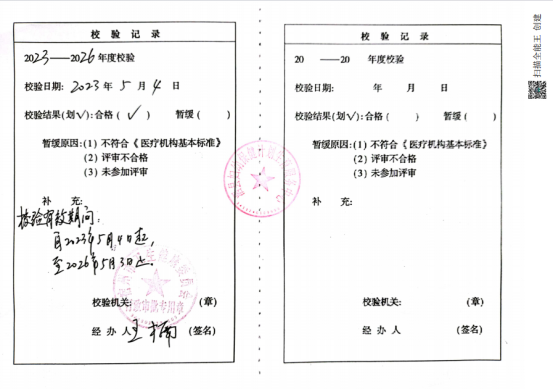 校验记录
2023——2026年度校验
校验日期: 2023年5月4日
校验结果(划√): 合格(√) 暂缓( )
暂缓原因:(1) 不符合《医疗机构基本标准》
(2) 评审不合格
(3) 未参加评审
补 充:
校验有效期间:
自2023年5月4日起,
至2026年5月3日止.
校验机关: (章)
经办人 (签名)
校验记录
20 ——20 年度校验
校验日期: 年 月 日
校验结果(划√): 合格( ) 暂缓( )
暂缓原因:(1) 不符合《医疗机构基本标准》
(2) 评审不合格
(3) 未参加评审
补 充:
校验机关: (章)
经办人 (签名)
扫描全能王 创建